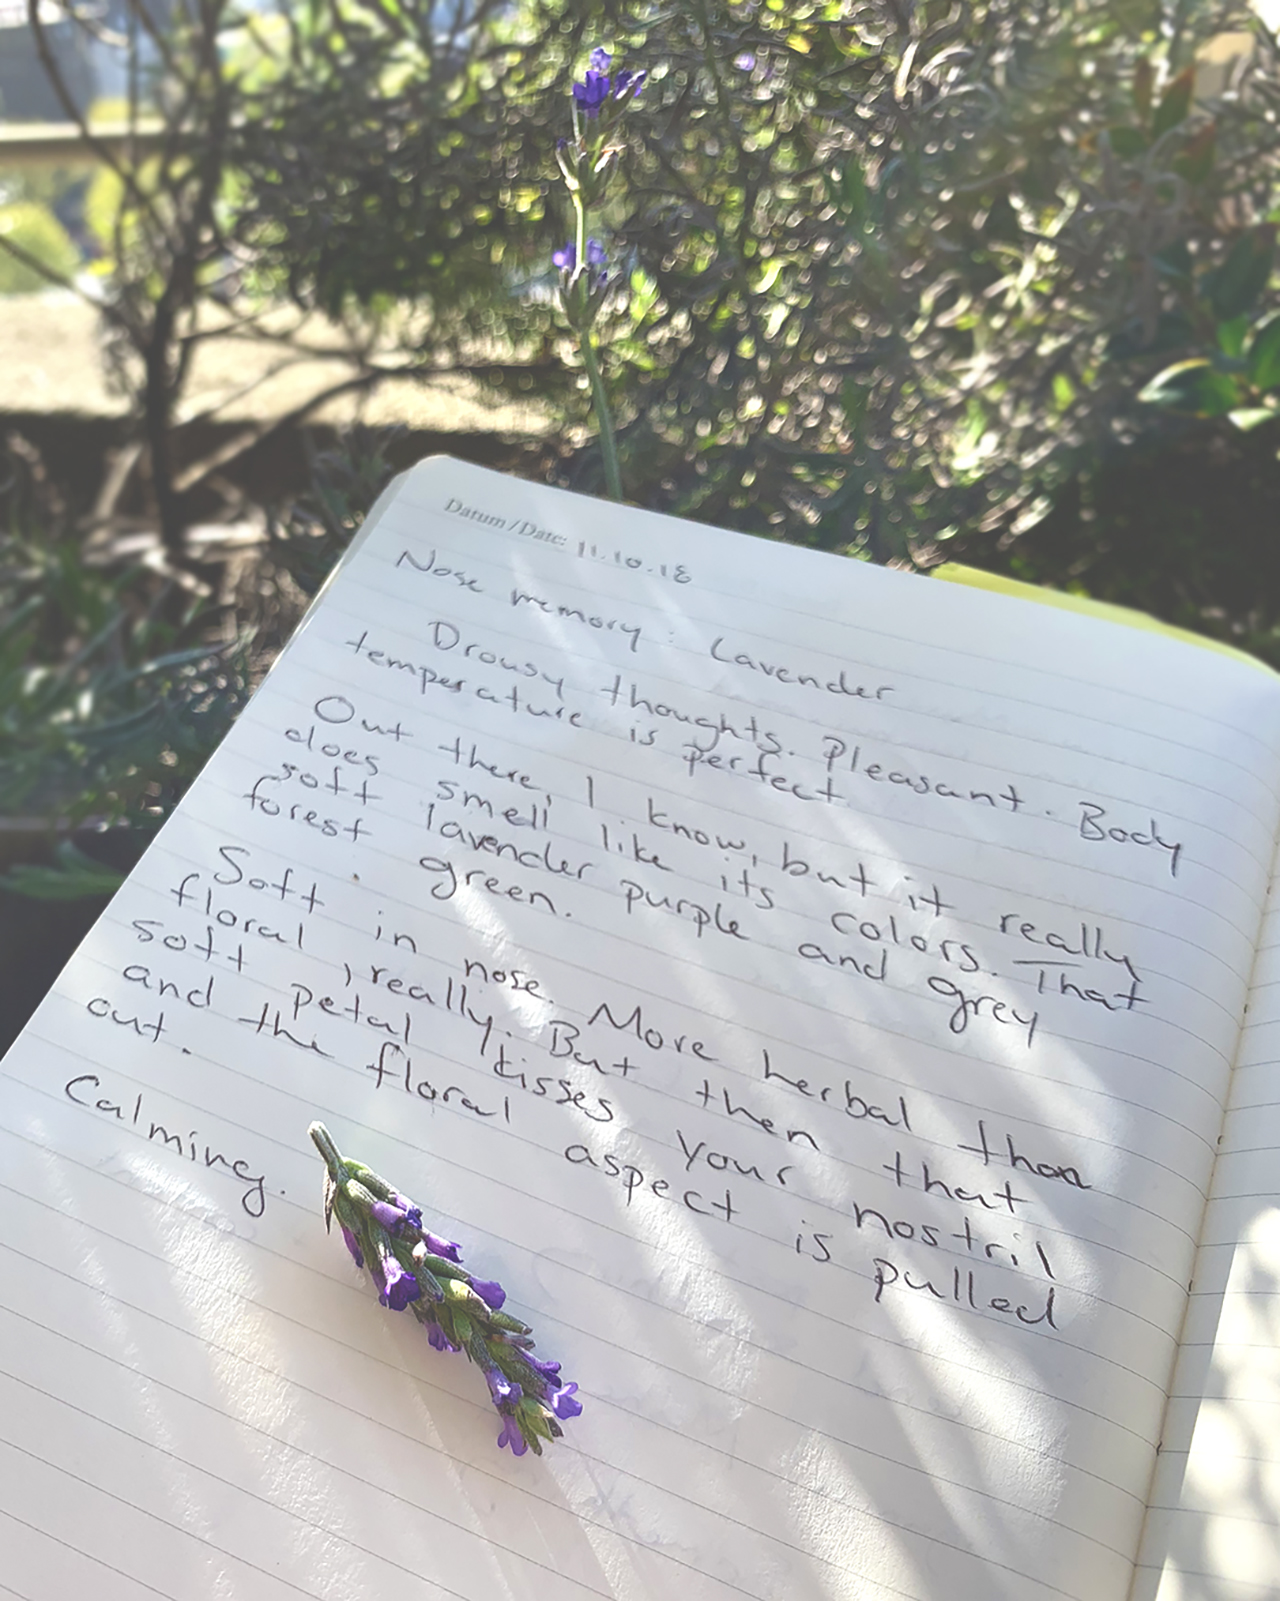 Datum/Date: 11.10.18
Nose memory: Lavender
Drowsy thoughts. Pleasant. Body
temperature is perfect.
Out there, I know, but it really
does smell like its colors. That
soft lavender purple and grey
forest green.
Soft in nose. More herbal than
floral, really. But then that
soft petal kisses your nostril
and the floral aspect is pulled
out.
Calming.